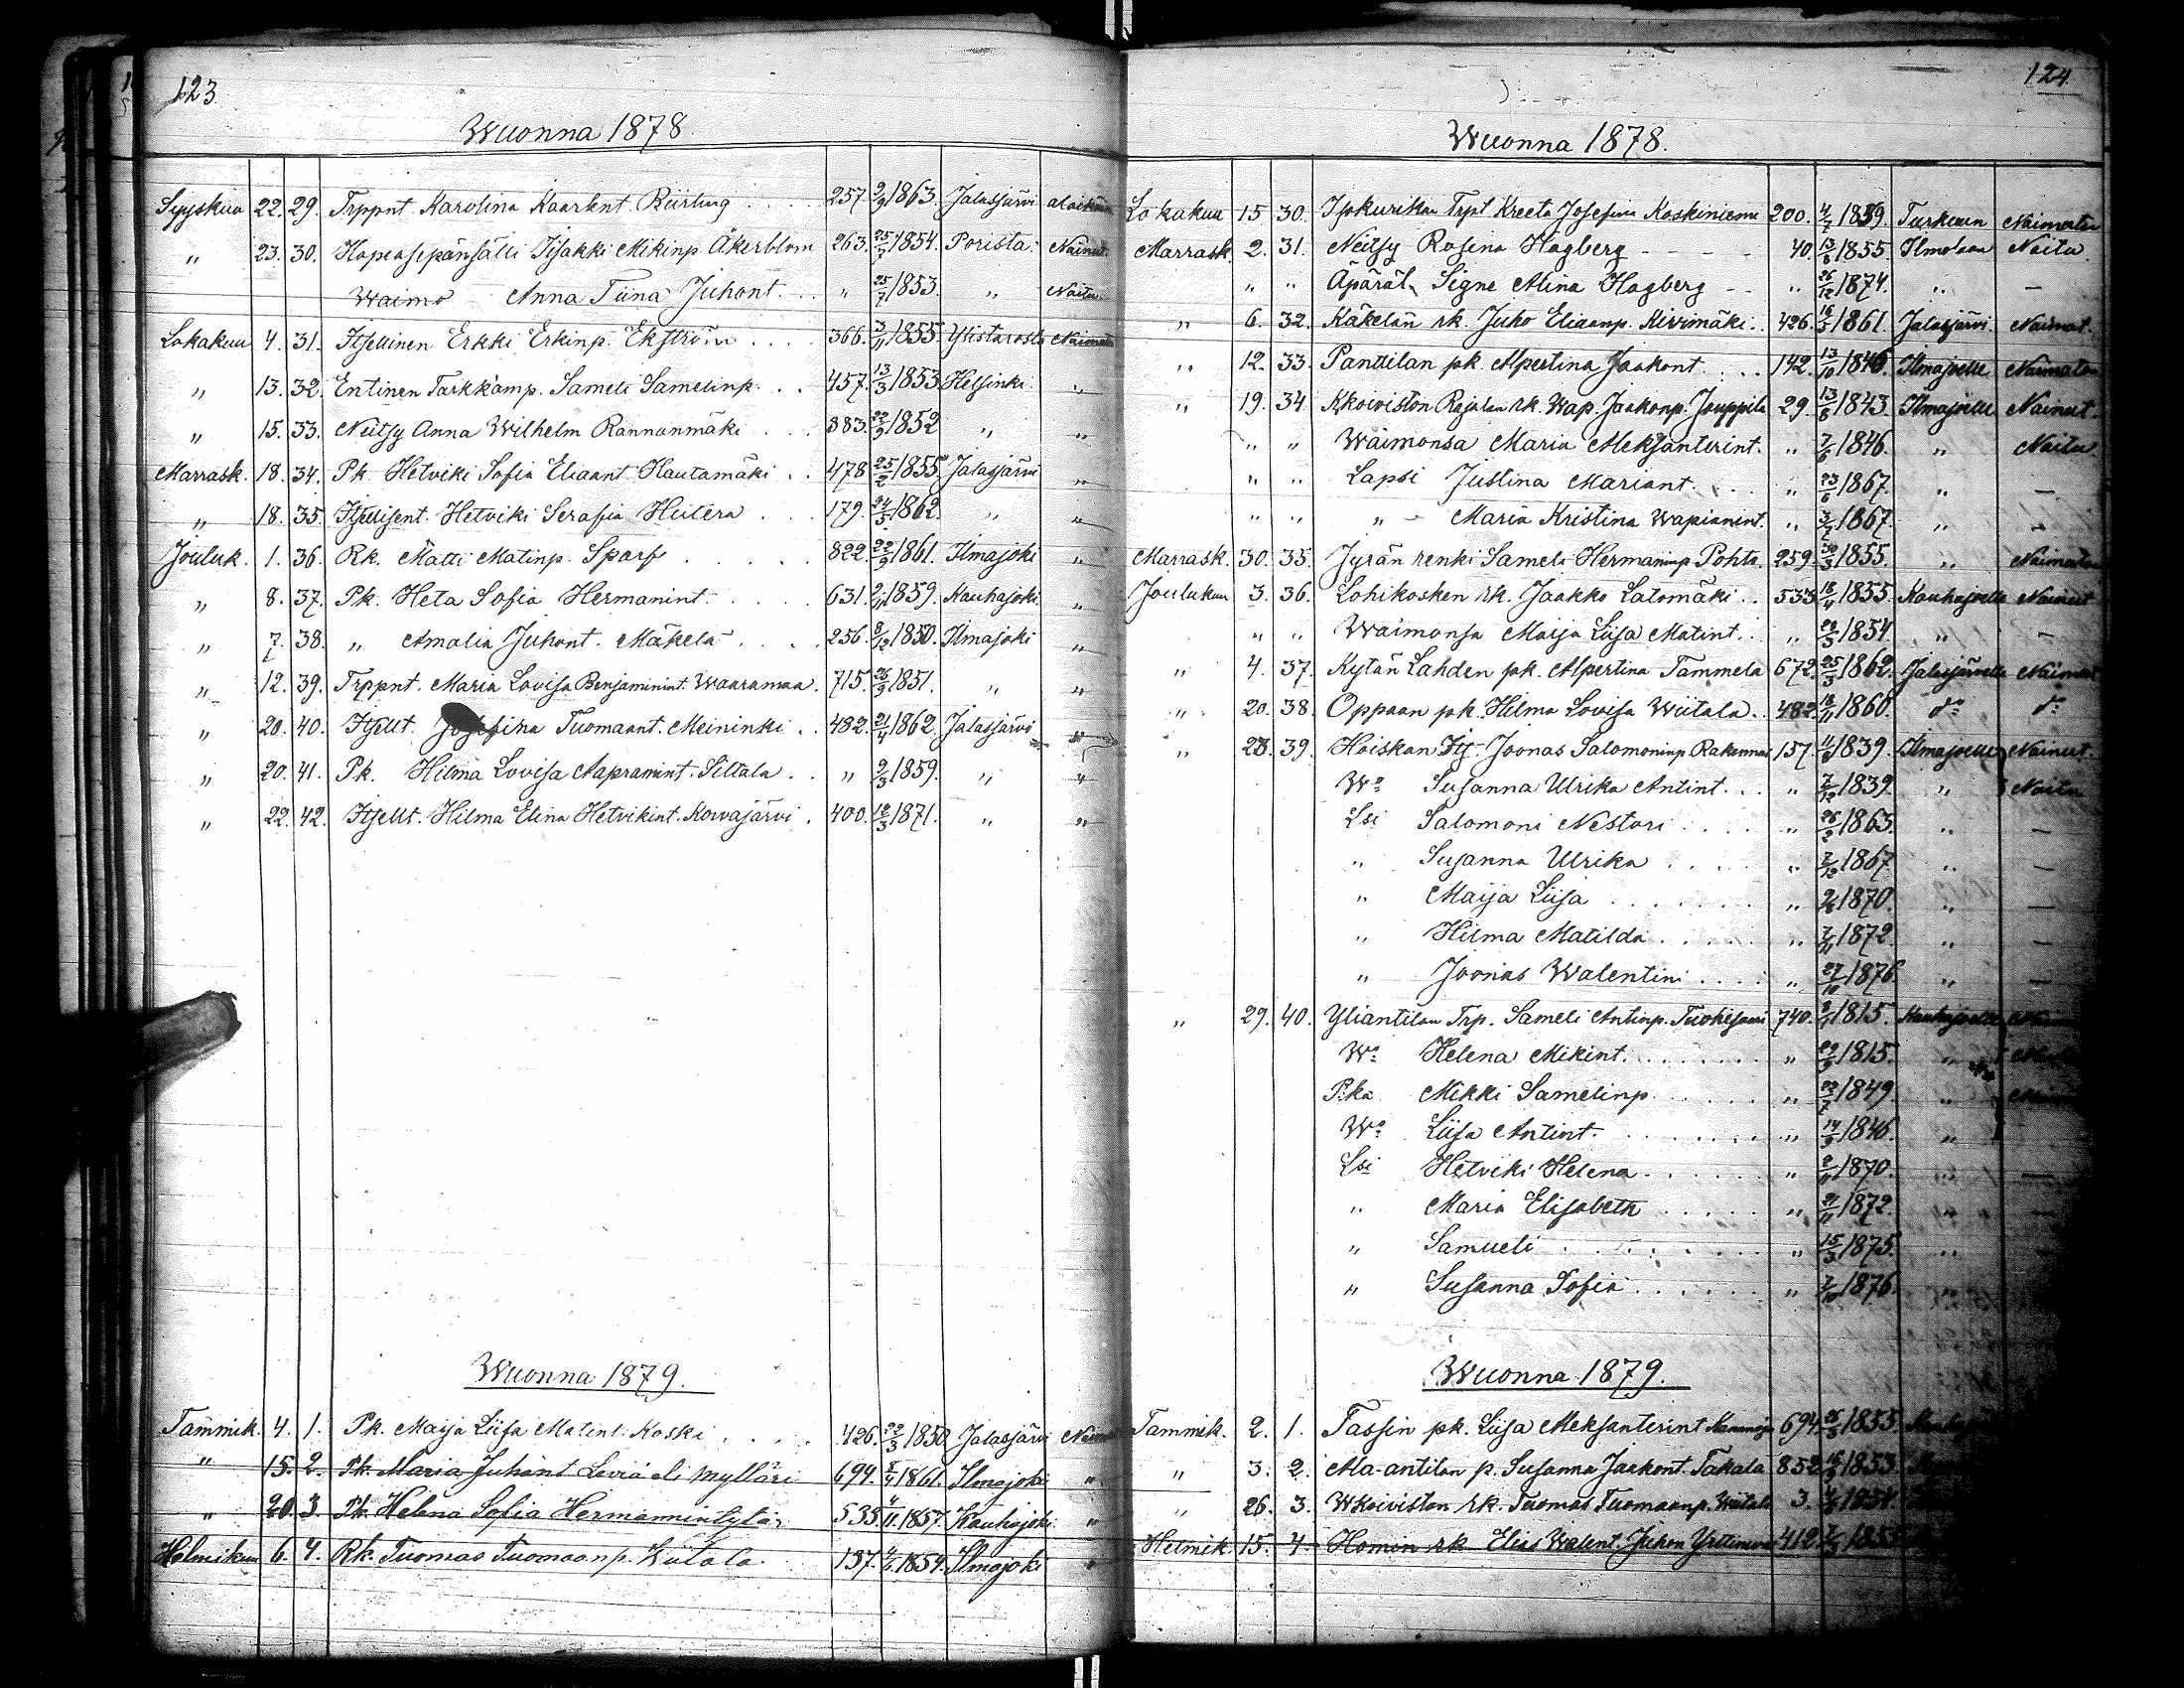 123
Wuonna 1878.
Syyskuu 22. 29. Trppnt. Karolina Kaarlent. Riirling 257. 2/9 1863. Jalasjärvi alaikäin
" 23. 30. Hopeasepänsälli Iisakki Mikinp. Åkerblom 263. 1854. Porista Nainut.
Waimo Anna Tiina Juhont. " 25/7 1853. " Naitu
Lokakuu 4. 31. Itsellinen Erkki Erkinp. Ekström 366. 3/11 1855. Ylistarosta Naimaton
" 13. 32. Entinen Tarkkamp. Sameli Samelinp. 457. 13/3 1853 Helsinki "
" 15. 33. Neitsy Anna Wilhelm Rannanmäki 383. 22/9 1852 " "
Marrask. 18. 34. Pk. Hetviki Sofia Eliaant Hautamäki 478 25/2 1855 Jalasjärvi "
" 18. 35. Itsellisent. Hetviki Serafia Hiitera 179. 24/3 1862. " "
Jouluk. 1. 36. Rk. Matti Matinp. Sparf 822. 22/9 1861. Ilmajoki "
" 8. 37. Pk. Heta Sofia Hermanint. 631. 2/11 1859. Kauhajoki. "
" 7. 38. " Amalia Juhont. Mäkelä 256. 8/12 1850. Ilmajoki "
" 12. 39. Trppnt. Maria Lovisa Benjaminint. Waaramaa. 715. 26/9 1851. " "
" 20. 40. Itsellt. Josefina Tuomaant. Meininki 482. 21/4 1862. Jalasjärvi "
" 20. 41. Pk. Hilma Lovisa Aapramint. Siltala " 9/3 1859. " "
" 22. 42. Itsellt. Hilma Elina Hetvikint. Kowajärvi 400. 12/3 1871. " "
Wuonna 1879.
Tammik. 4. 1. Pk. Maija Liisa Matint. Koski 426. 22/3 1850 Jalasjärvi
" 15. 2. Pk. Maria Juhant Mylläri 694. 1861. Ilmajoki "
" 20. 3. Pk. Helena Sofia Hermannintytär 535 1857. Kauhajoki "
Helmikuu 6. 4. Rk. Tuomas Tuomaanp. Wiitala 137. 1854. Ilmajoki "
124.
Wuonna 1878.
Lokakuu 15 30. Ispkurikan Trpt Kreeta Josefina Koskiniemi 200. 4/7 1859. Turkuun Naimaton
Marrask. 2. 31. Neitsy Rosina Hagberg 40. 1855. Ilmolaan Naitu
" " Äpärät. Signe Alina Hagberg " 26/12 1874. " —
" 6. 32. Käkelän rk. Juho Eliaanp. Kivimäki 426. 1861. Jalasjärvi. Naimat.
" 12. 33. Panttilan pk. Alpertina Jaakont. 142. 13/10 1846. Ilmajoelle Naimaton
" 19. 34. Kkoiviston Rajalan rk. Wap. Jaakonp. Jouppila 29. 13/6 1843. Ilmajoelle Nainut.
" " Waimonsa Maria Aleksanterint. " 1846. " Naitu
" " Lapsi Justina Mariant. " 23/6 1867. " —
" " " Maria Kristina Wapianint. " 1867. " —
Marrask. 30. 35. Jyrän renki Sameli Hermaninp. Pohto. 259. 30/3 1855. " Naimaton
Joulukuu 3. 36. Lohikosken rk. Jaakko Latomäki 533 18/11 1855. Kauhajoelle Nainut
" " Waimonsa Maija Liisa Matint. " 1854. " —
" 4. 37. Kytän Lahden pk. Alpertina Tammela 672. 25/3 1862. Jalasjärvelle Naimat
" 20. 38. Oppaan pk. Hilma Lovisa Wiitala 482. 18/11 1860. do do
" 23. 39. Hoiskan Itj. Joonas Salomoninp. Rakannas 157. 1839. Ilmajoelle Nainut.
Wo Susanna Ulrika Antint. " 7/12 1839. " Naitu
Lsi Salomoni Nestori " 26/2 1865. " —
" Susanna Ulrika " 7/12 1867. " —
" Maija Liisa " 1870. " —
" Hilma Matilda " 7/11 1872. " —
" Joonas Walentini " 27/10 1876. " —
" 29. 40. Yliantilan Trp. Sameli Antinp. Tuohisaari 740. 1815. Kauhajoelle
Wo Helena Mikint. " 1815. "
Pka Mikki Samelinp. " 22/7 1849. "
Wo Liisa Antint. " 1846. "
Lsi Hetviki Helena " 1870. " —
" Maria Elisabeth " 21/11 1872. " —
" Samueli " 15/3 1875. " —
" Susanna Sofia " 7/10 1876. "
Wuonna 1879.
Tammik. 2. 1. Tassin pk. Liisa Aleksanterint 694. 1855.
" 3. 2. Ala-antilan p. Susanna Jaakont. Takala 852 1853.
" 26. 3. Wkoiviston rk. Tuomas Tuomaanp. Wiitala 3. 1854.
Helmik. 15. 4. Homin rk Elias Walent. Juhon 412.